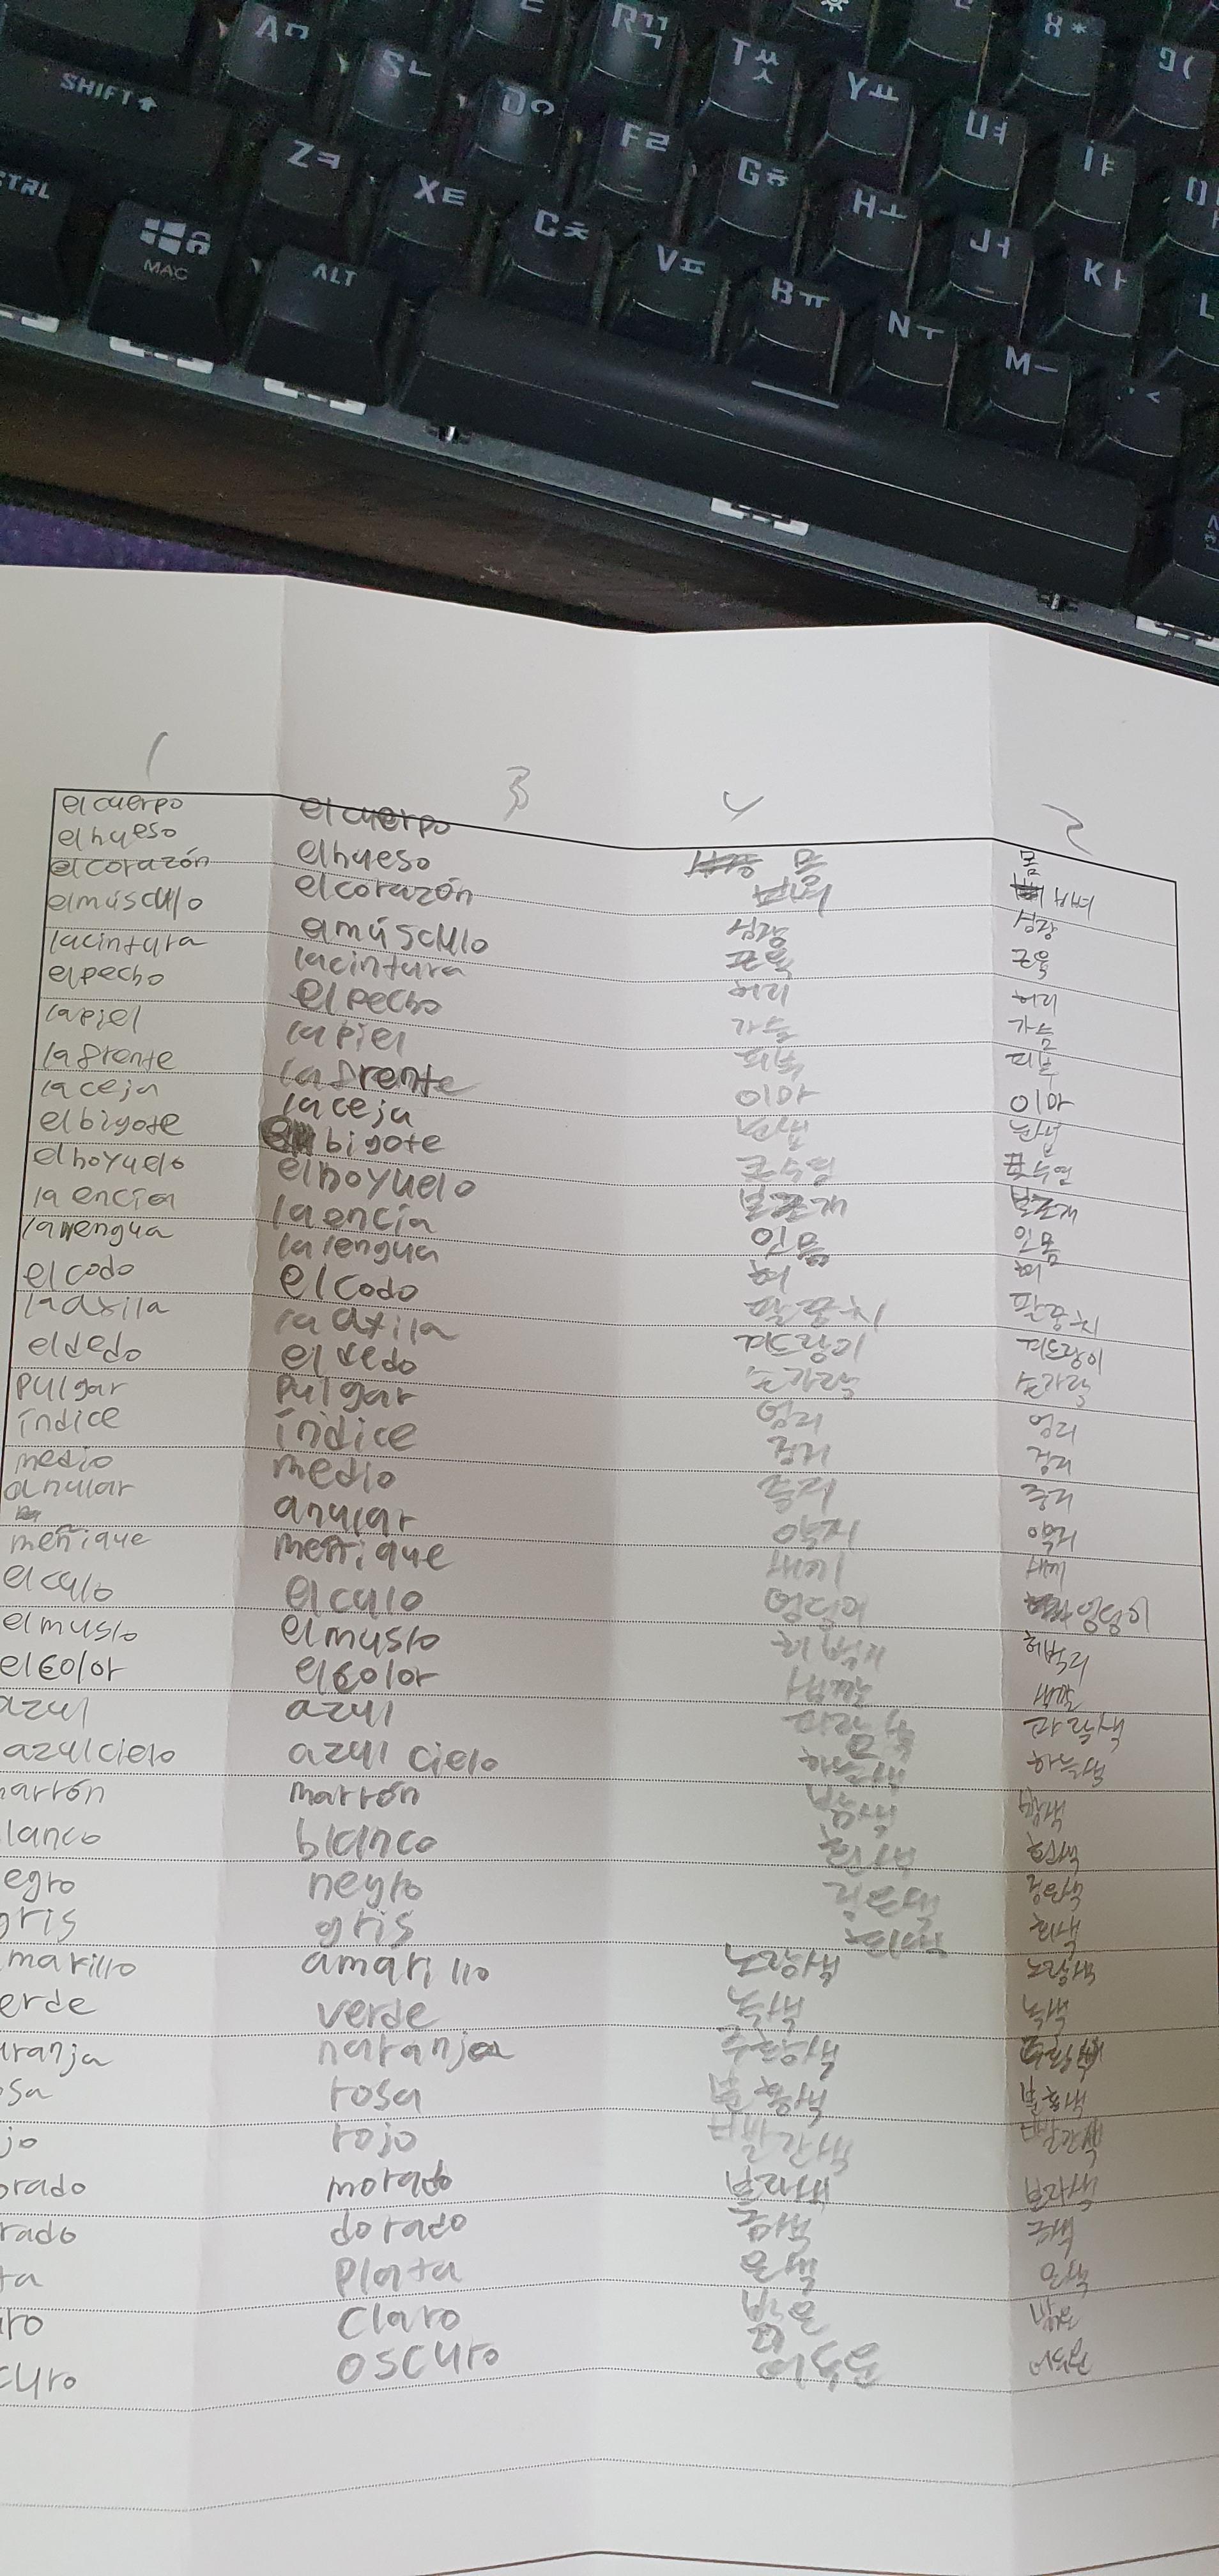 Aㅁ R ㄲㄱ 8*
SHIFT Sㄴ Dㅇ Tㅆㅅ Yㅛ 9(
CTRL Zㅋ Fㄹ Uㅕ
Xㅌ Gㅎ Iㅑ
MAC ALT Cㅊ Hㅗ
Vㅍ Jㅓ
Bㅠ Kㅏ L
Nㅜ
Mㅡ <
1 3 4 2
el cuerpo el cuerpo 몸 몸
el hueso el hueso 뼈 뼈
el corazón el corazón 심장 심장
el músculo el músculo 근육 근육
la cintura la cintura 허리 허리
el pecho el pecho 가슴 가슴
la piel la piel 피부 피부
la frente la frente 이마 이마
la ceja la ceja 눈썹 눈썹
el bigote bigote 콧수염 콧수염
el hoyuelo el hoyuelo 보조개 보조개
la encía la encía 잇몸 잇몸
la lengua la lengua 혀 혀
el codo el codo 팔꿈치 팔꿈치
la axila la axila 겨드랑이 겨드랑이
el dedo el dedo 손가락 손가락
pulgar pulgar 엄지 엄지
índice índice 검지 검지
medio medio 중지 중지
anular anular 약지 약지
meñique meñique 새끼 새끼
el culo el culo 엉덩이 엉덩이
el muslo el muslo 허벅지 허벅지
el color el color 색깔 색깔
azul azul 파랑색 파랑색
azul cielo azul cielo 하늘색 하늘색
arrón marrón 밤색 밤색
lanco blanco 흰색 흰색
egro negro 검은색 검은색
gris gris 회색 회색
marillo amarillo 노랑색 노랑색
erde verde 녹색 녹색
aranja naranja 주황색 주황색
osa rosa 분홍색 분홍색
jo rojo 빨간색 빨간색
orado morado 보라색 보라색
rado dorado 금색 금색
ta plata 은색 은색
ro claro 밝은 밝은
curo oscuro 어두운 어두운